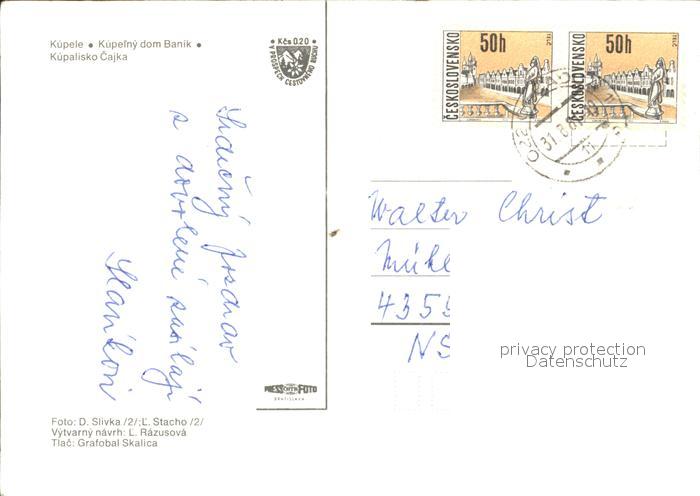 Kúpele • Kúpeľný dom Baník •
Kúpalisko Čajka
Kčs 0.20
V PROSPECH CESTOVNÉHO RUCHU
ČESKOSLOVENSKO
50h
TELČ
ČESKOSLOVENSKO
50h
TELČ
31.8.
Srdečný pozdrav
z dovolené zasílají
Walter Christ
Mühl
4359
NS
privacy protection
Datenschutz
PRESSFOTO
Bratislava
Foto: D. Slivka /2/; Ľ. Stacho /2/
Výtvarný návrh: Ľ. Rázusová
Tlač: Grafobal Skalica